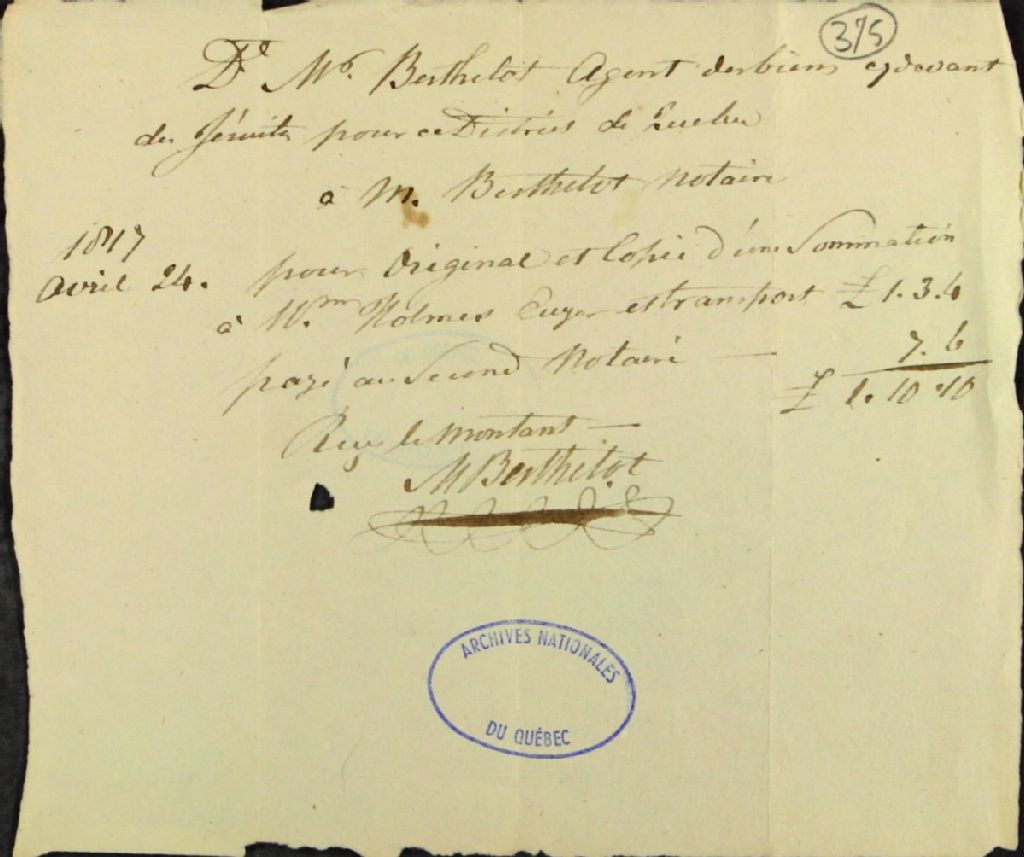 375
Dt. Mr. Berthelot Agent des biens cydevant
des Jésuites pour ce District de Quebec
à M. Berthelot Notaire
1817
Avril 24. pour Original et Copie d'une Sommation
à Wm. Holmes Ecuyer et transport £ 1. 3. 4
payé au Second Notaire — 7. 6
£ 1. 10. 10
Reçu le montant —
M Berthelot
ARCHIVES NATIONALES
DU QUÉBEC